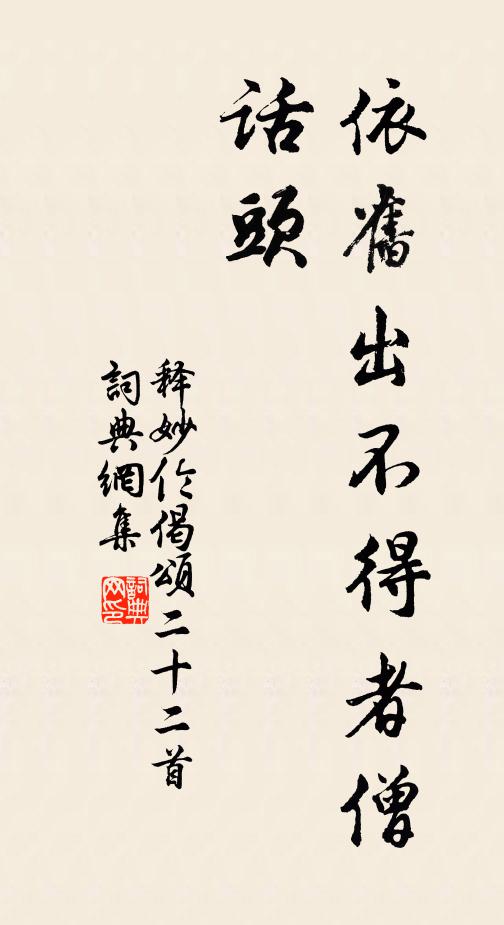 依舊出不得者僧
話頭
释妙伦偈頌二十二首
詞典網集
詞典
网印